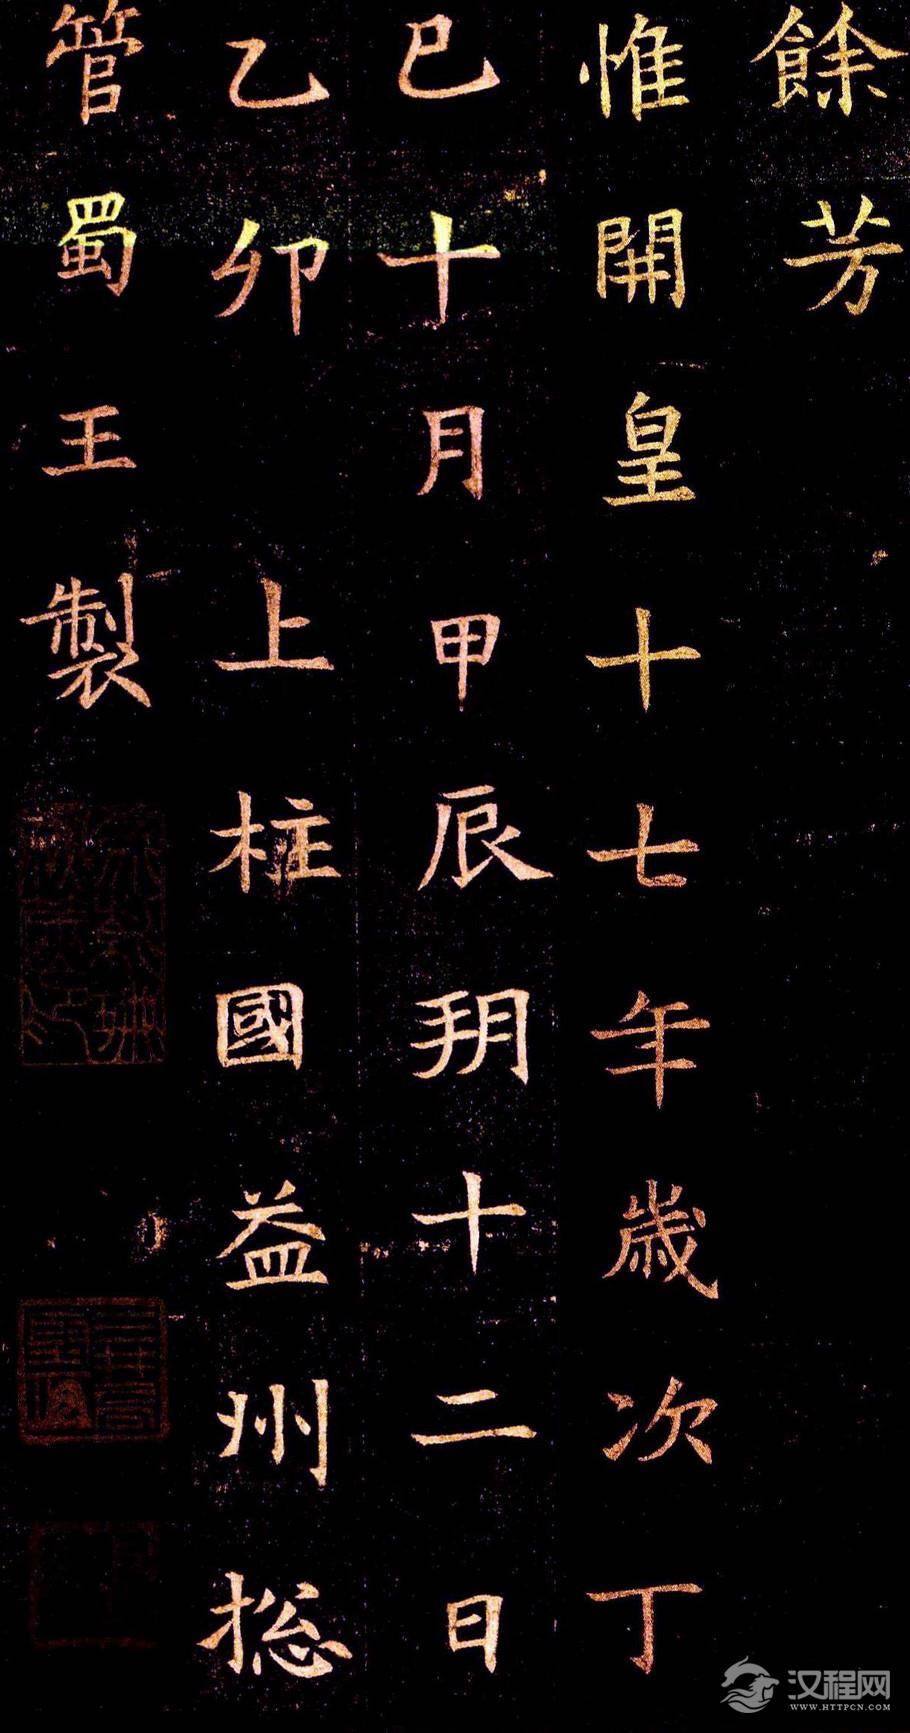 餘芳
惟開皇十七年歲次丁
巳十月甲辰朔十二日
乙卯上柱國益州捴
管蜀王製
汉程网
WWW.HTTPCN.COM